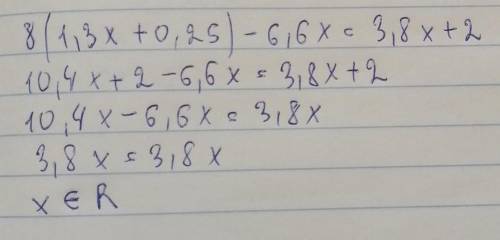 8(1,3x+0,25)-6,6x=3,8x+2
10,4x+2-6,6x=3,8x+2
10,4x-6,6x=3,8x
3,8x=3,8x
x∈R